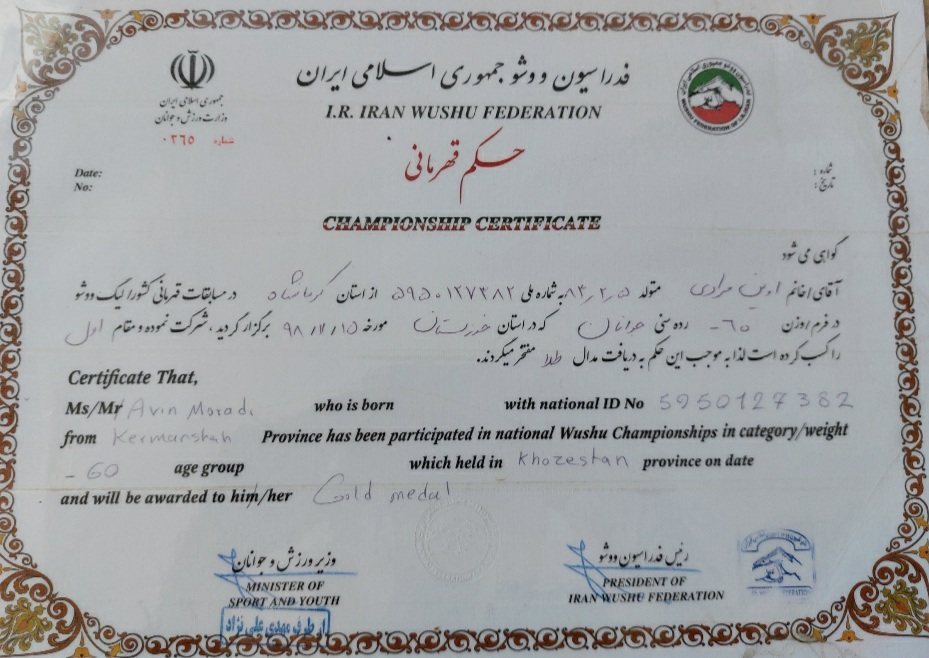 فدراسیون ووشو جمهوری اسلامی ایران
I.R. IRAN WUSHU FEDERATION
جمهوری اسلامی ایران
وزارت ورزش و جوانان
شماره ۰۳۶۵
WUSHU FEDERATION OF I.R.IRAN
حکم قهرمانی
Date:
No:
شماره :
تاریخ :
CHAMPIONSHIP CERTIFICATE
گواهی می شود
آقای/خانم اوین مرادی متولد ۸۳/۲/۵ به شماره ملی ۵۹۵۰۱۲۷۳۸۲ از استان کرمانشاه در مسابقات قهرمانی کشور/لیگ ووشو
در فرم/وزن ۶۰- رده سنی جوانان که در استان خوزستان مورخه ۹۸/۷/۱۵ برگزار گردید ، شرکت نموده و مقام اول
را کسب کرده است لذا به موجب این حکم به دریافت مدال طلا مفتخر میگردند.
Certificate That,
Ms/Mr Avin Moradi who is born with national ID No 5950127382
from Kermanshah Province has been participated in national Wushu Championships in category/weight
-60 age group which held in Khozestan province on date
and will be awarded to him/her Gold medal
وزیر ورزش و جوانان
MINISTER OF
SPORT AND YOUTH
از طرف مهدی علی نژاد
رئیس فدراسیون ووشو
PRESIDENT OF
IRAN WUSHU FEDERATION